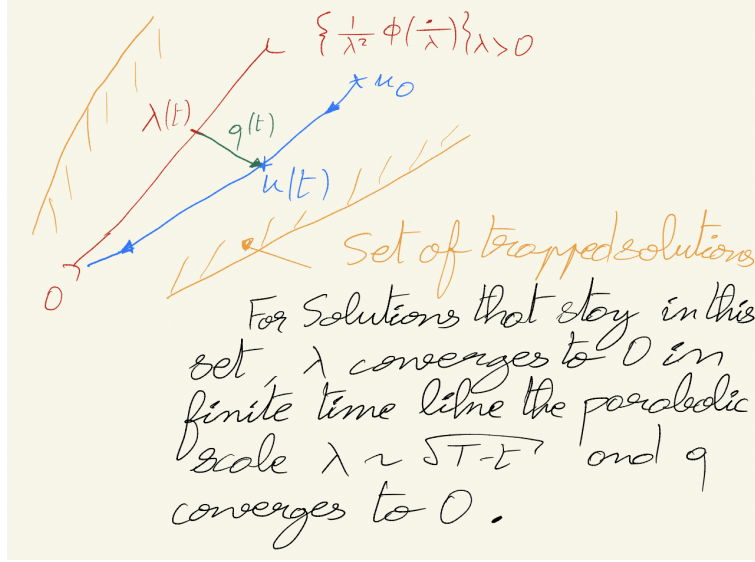 { 1/λ² Φ(·/λ) }λ>0
u0
λ(t)
q(t)
u(t)
0
Set of trapped solutions
For Solutions that stay in this
set, λ converges to 0 in
finite time like the parabolic
scale λ ~ √T-t and q
converges to 0.